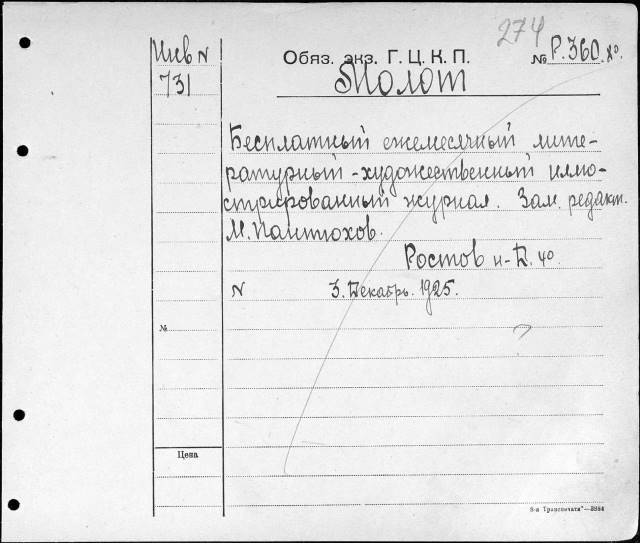 274
Инв N
731
Обяз. экз. Г. Ц. К. П.
№ Р. 360.
Молот
Бесплатный ежемесячный лите-
ратурный-художественный иллю-
стрированный журнал. Зам. редакт.
М. Пантюхов.
Ростов н-Д. 4°.
N 3. Декабрь. 1925.
№
Цена
3-я Транспечати"—3884